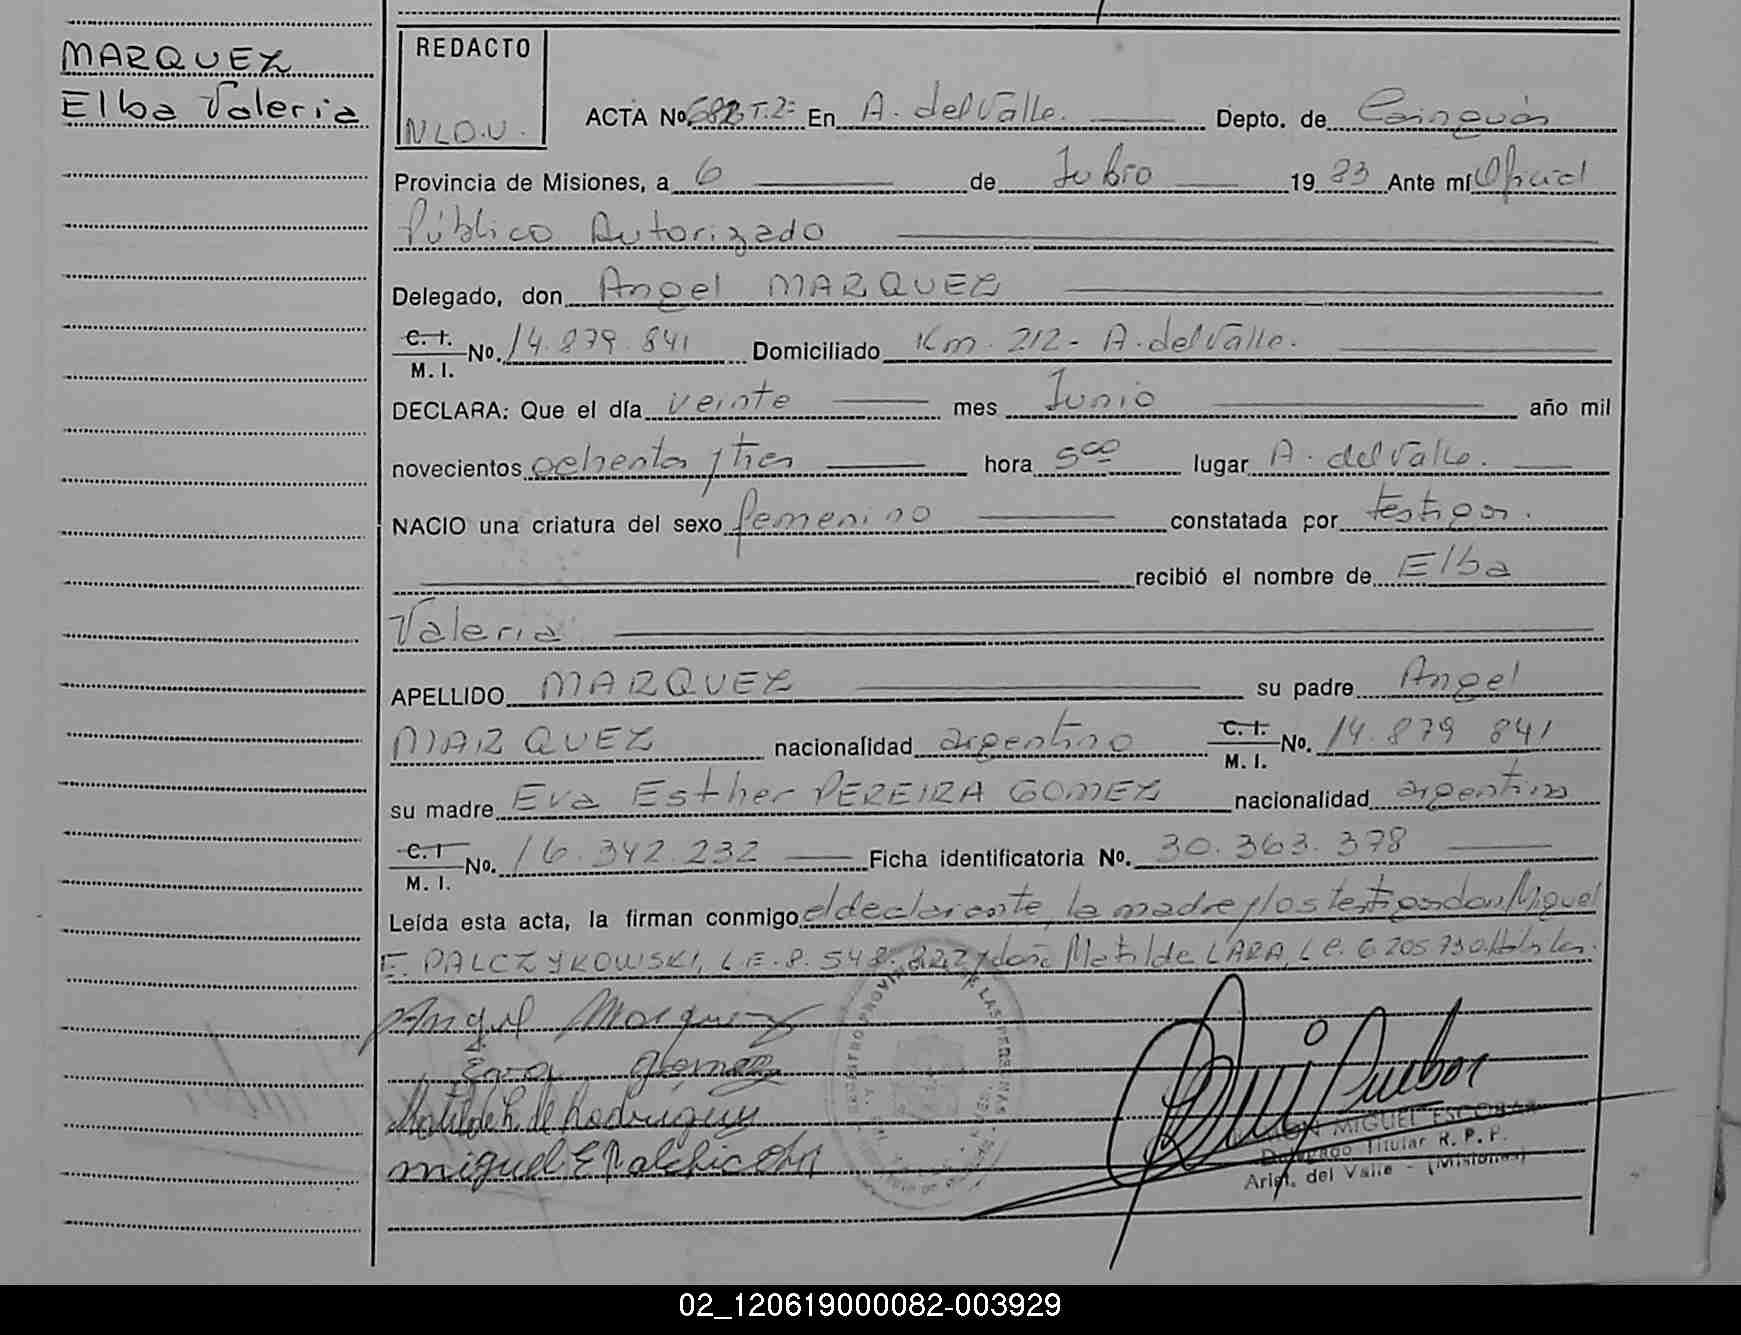 MARQUEZ
Elba Valeria
REDACTO
N.L.O.U.
ACTA No. 682 T. 2º En A. del Valle. Depto. de Cainguás
Provincia de Misiones, a 6 de 1983 Ante mí Oficial
Público Autorizado
Delegado, don Angel MARQUEZ
C. I. M. I. No. 14.879.841 Domiciliado Km. 212 - A. del Valle.
DECLARA: Que el día veinte mes Junio año mil
novecientos ochenta y tres hora 5 00 lugar A. del Valle.
NACIO una criatura del sexo femenino constatada por testigos.
recibió el nombre de Elba
Valeria
APELLIDO MARQUEZ su padre Angel
MARQUEZ nacionalidad argentino C. I. M. I. No. 14.879 841
su madre Eva Esther PEREIRA GOMEZ nacionalidad argentina
C. I M. I. No. 16.342.232 Ficha identificatoria No. 30.363.378
Leída esta acta, la firman conmigo el declarante, la madre y los testigos don Miguel
E. PALCZYKOWSKI, L.E. 8.548. y doña Matilde LARA, L.C. 6 205 730.
Angel Marquez
Eva Gomez
Matilde L. de Rodriguez
Miguel E
MIGUEL ESCOBAR
Delegado Titular R. P. P.
Arist. del Valle - (Misiones)
02_120619000082-003929